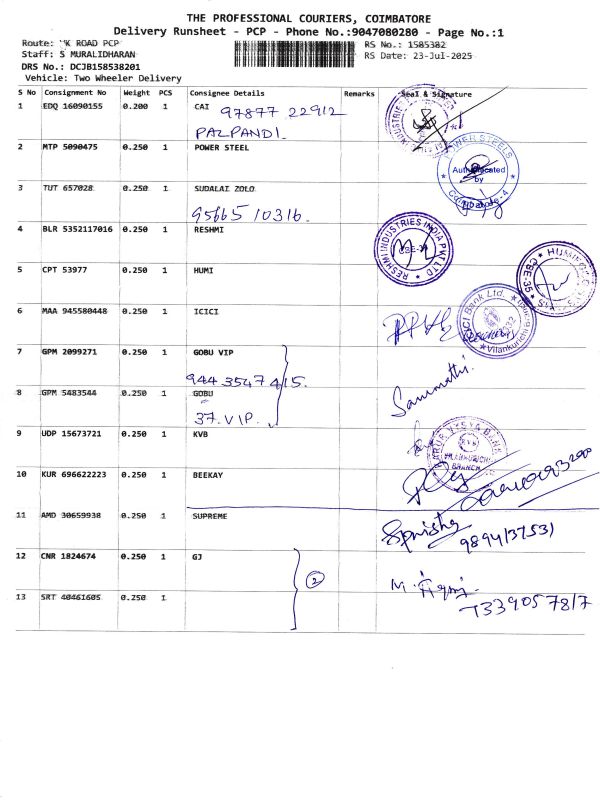 THE PROFESSIONAL COURIERS, COIMBATORE
Delivery Runsheet - PCP - Phone No.:9047080280 - Page No.:1
Route: VK ROAD PCP
RS No.: 1585382
Staff: S MURALIDHARAN
RS Date: 23-Jul-2025
DRS No.: DCJB158538201
Vehicle: Two Wheeler Delivery
S No Consignment No Weight PCS Consignee Details Remarks Seal & Signature
1 EDQ 16090155 0.200 1 CAI 97877 22912
PALPANDI.
2 MTP 5090475 0.250 1 POWER STEEL
POWER STEELS
Authenticated
by
Coimbatore-4
3 TUT 657028 0.250 1 SUDALAI ZOLO
95665 10316.
4 BLR 5352117016 0.250 1 RESHMI
RESHMI INDUSTRIES INDIA PVT LTD
CBE-35
5 CPT 53977 0.250 1 HUMI
CBE-35
6 MAA 945580448 0.250 1 ICICI
ICICI Bank Ltd.
Vilankurichi
7 GPM 2099271 0.250 1 GOBU VIP
944 3547 415.
Sammathi.
8 GPM 5483544 0.250 1 GOBU
37. VIP.
9 UDP 15673721 0.250 1 KVB
KARUR VYSYA BANK
KVB
VILANKURICHI
BRANCH
10 KUR 696622223 0.250 1 BEEKAY
11 AMD 30659938 0.250 1 SUPREME
9894137531
12 CNR 1824674 0.250 1 GJ
2
13 SRT 40461605 0.250 1
7339057817